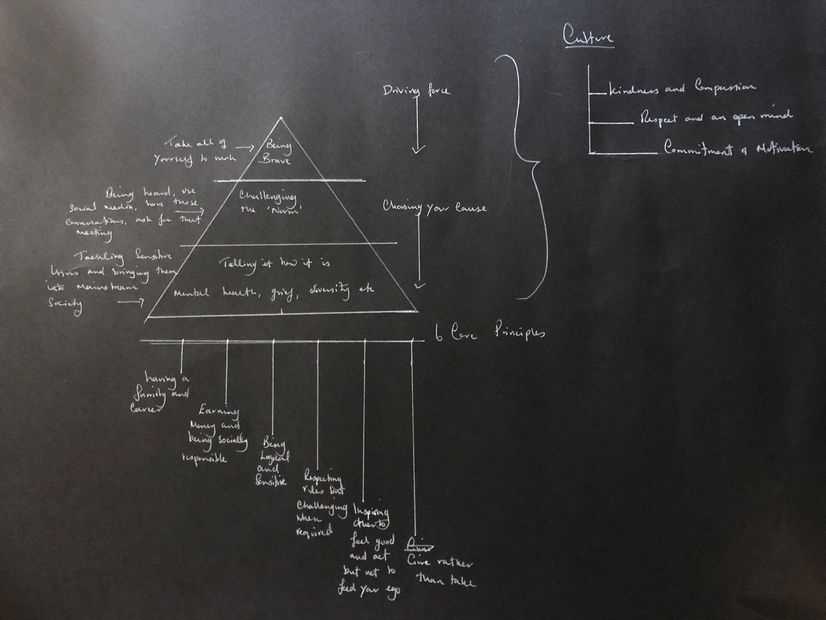 Culture
Kindness and Compassion
Respect and an open mind
Commitment & Motivation
Driving force
Choosing your cause
Take all of
yourself to work
Being
Brave
Being heard, use
social media, have those
conversations, ask for that
meeting
Challenging
the 'Norm'
Tackling Sensitive
Issues and bringing them
into Mainstream
Society
Telling it how it is
Mental health, grief, diversity etc
6 Core Principles
having a
family and
Career
Earning
Money and
being socially
responsible
Being
Logical
and
Sensitive
Respecting
rules but
challenging
when
required
Inspiring
others to
feel good
and act
but not to
feed your ego
Give rather
than take